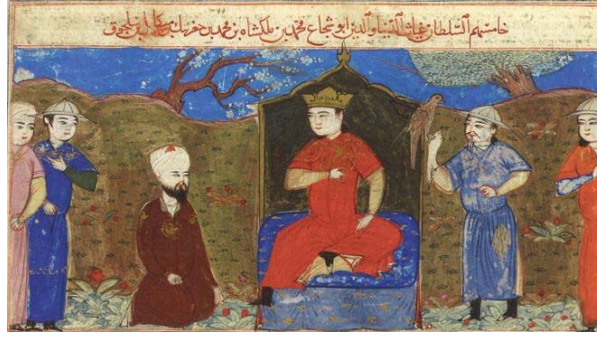 خامسهم السلطان غیاث الدنیا والدین ابو شجاع محمد بن ملکشاه بن محمد بن جغر بک بن میکائیل بن سلجوق